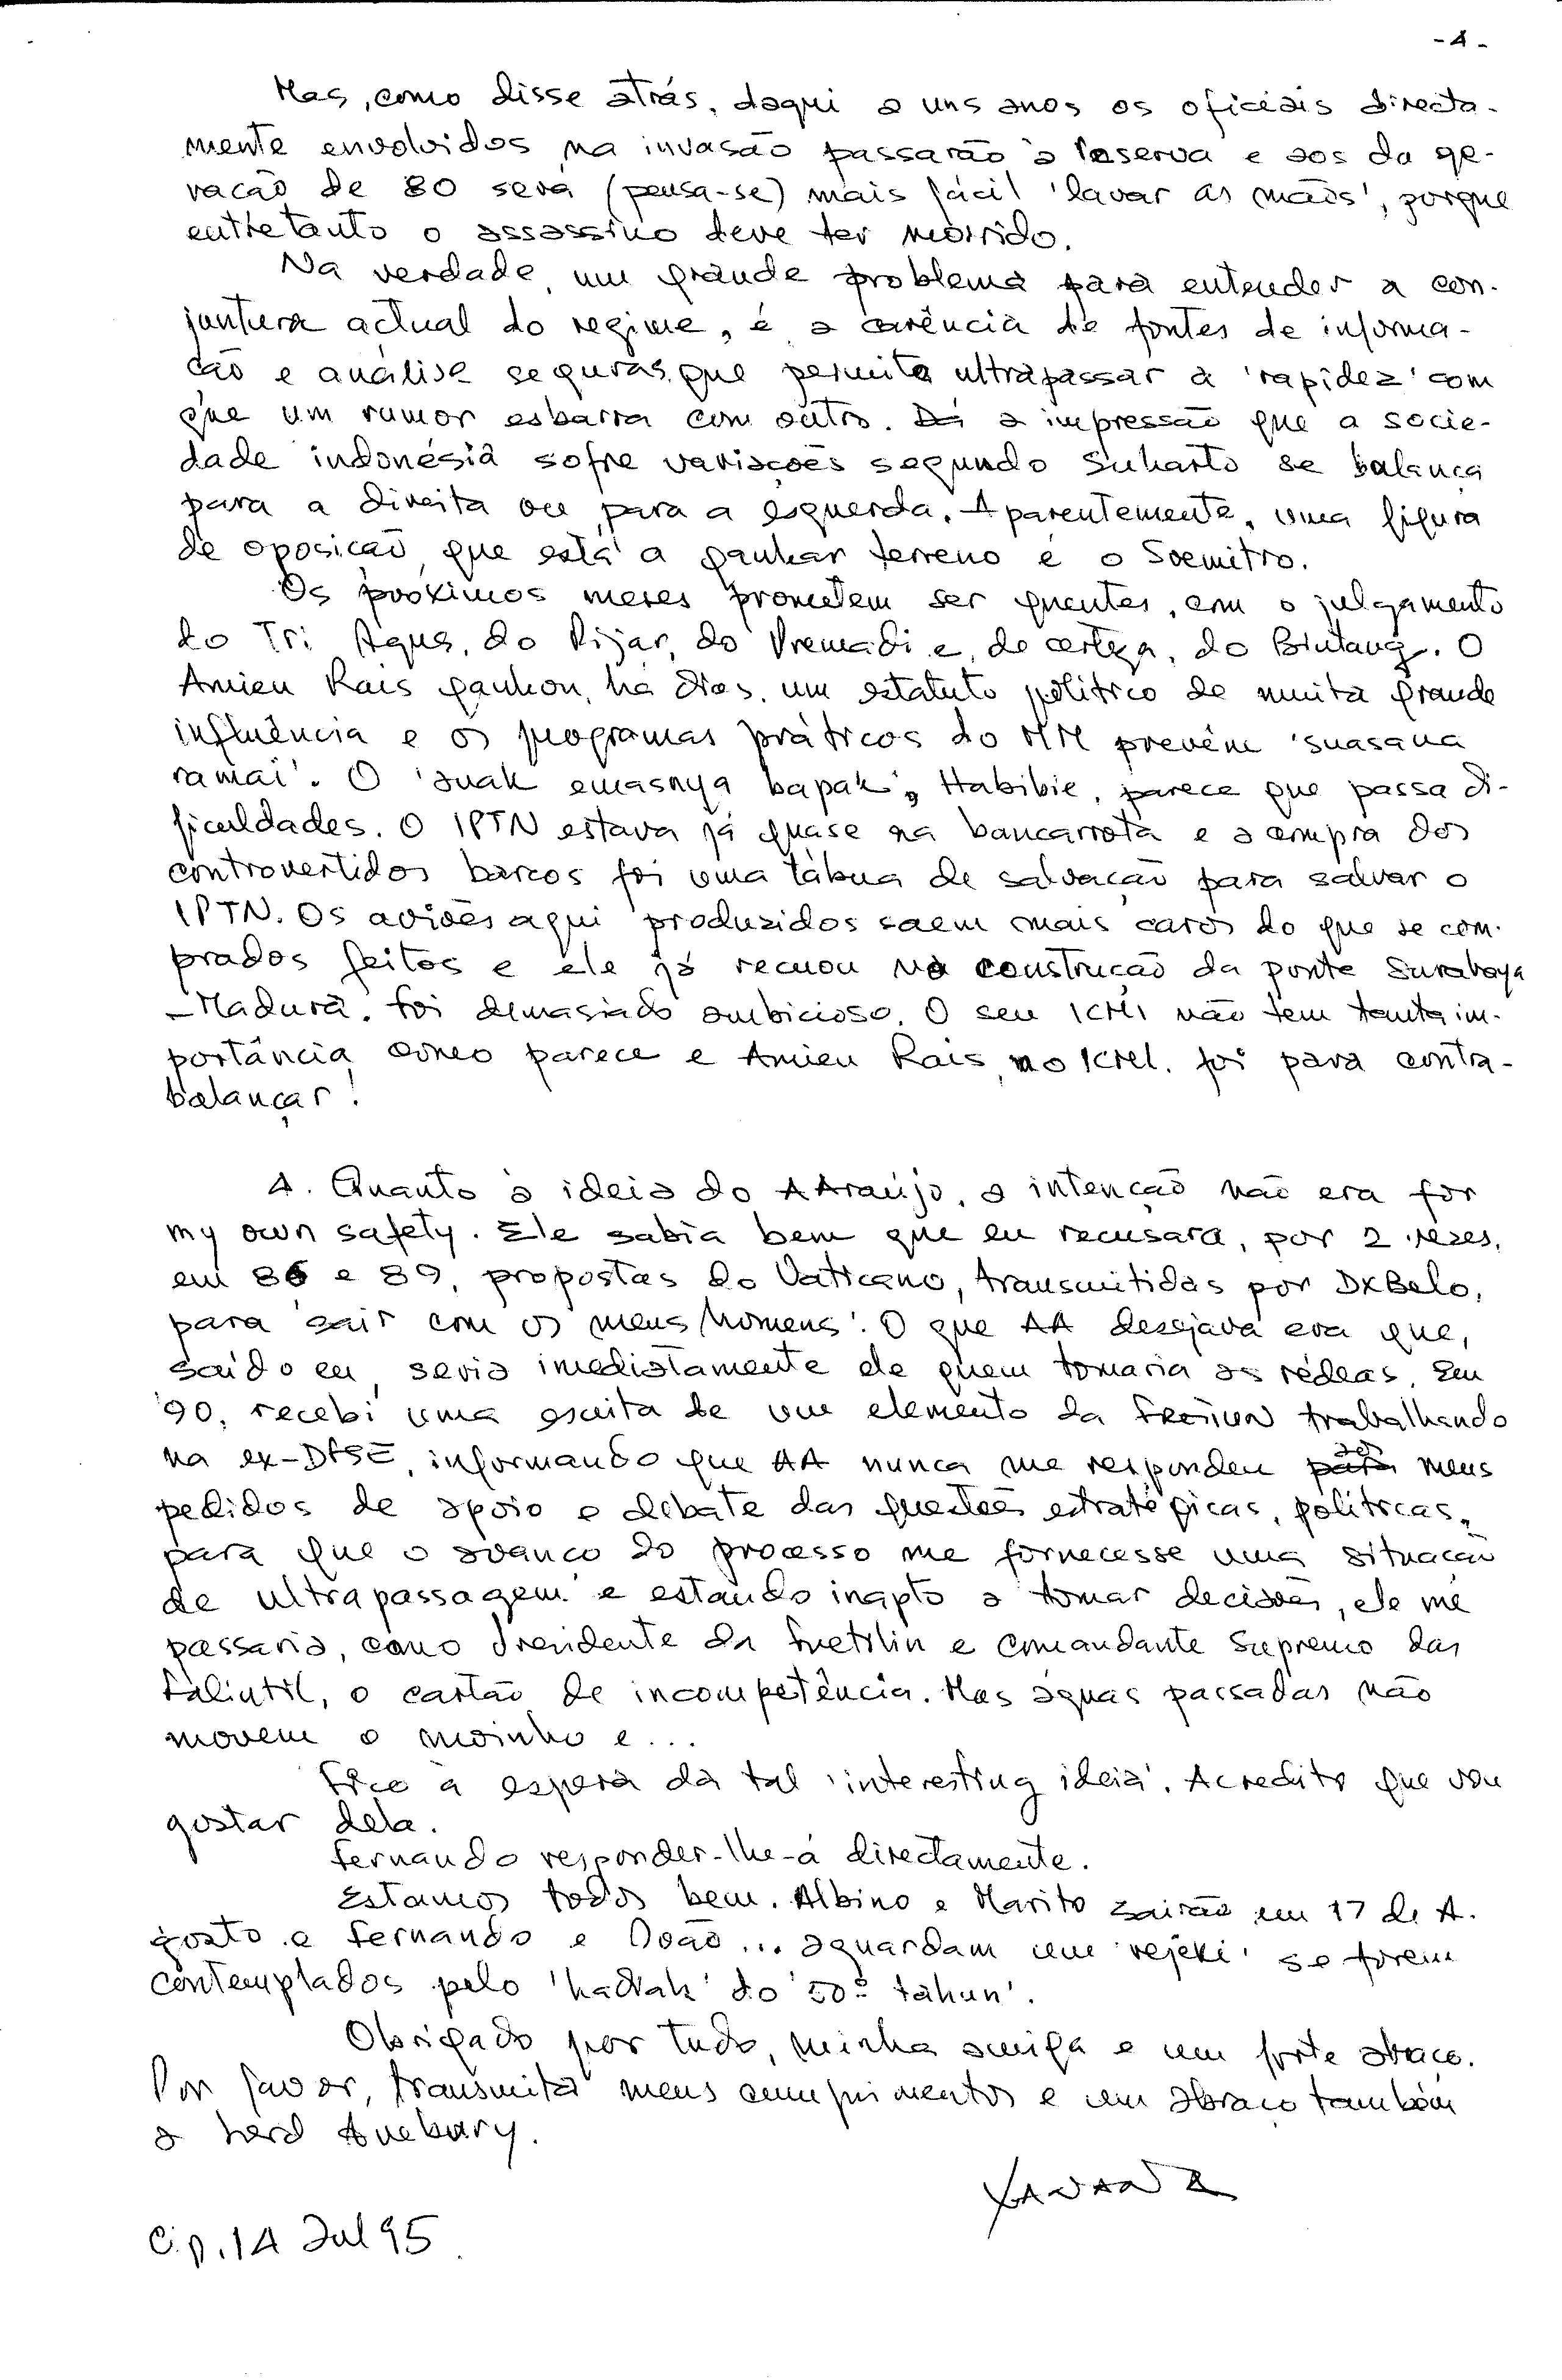 -4-
Mas, como disse atrás, daqui a uns anos os oficiais directa-
mente envolvidos na invasão passarão à reserva e aos da ge-
ração de 80 será (pensa-se) mais fácil 'lavar as mãos', porque
entretanto o assassino deve ter morrido.
Na verdade, um grande problema para entender a con-
juntura actual do regime, é a carência de fontes de informa-
ção e análise seguras, que permita ultrapassar a 'rapidez' com
que um rumor esbarra com outro. Dá a impressão que a socie-
dade indonésia sofre variações segundo Suharto se balança
para a direita ou para a esquerda. Aparentemente, uma figura
de oposição, que está a ganhar terreno é o Soemitro.
Os próximos meses prometem ser quentes, com o julgamento
do Tri Agus, do Pijar, do Premadi e, de certeza, do Bintang. O
Amien Rais ganhou, há dias, um estatuto político de muita grande
influência e os programas práticos do MM prevêm 'suasana
ramai'. O 'anak emasnya bapak', Habibie, parece que passa di-
ficuldades. O IPTN estava já quase na bancarrota e a compra dos
controvertidos barcos foi uma tábua de salvação para salvar o
IPTN. Os aviões aqui produzidos saem mais caros do que se com-
prados feitos e ele já recuou na construção da ponte Surabaya
-Madura. Foi demasiado ambicioso. O seu ICMI não tem tanta im-
portância como parece e Amien Rais, no ICMI. foi para contra-
balançar!
4. Quanto à ideia do AAraújo, a intenção não era for
my own safety. Ele sabia bem que eu recusara, por 2 vezes,
em 86 e 89, propostas do Vaticano, transmitidas por DXBelo,
para 'sair com os meus homens'. O que AA desejava era que,
saído eu, seria imediatamente ele quem tomaria as rédeas. Em
'90, recebi uma escrita de um elemento da Fretilin trabalhando
na ex-DFSE, informando que AA nunca me respondeu aos meus
pedidos de apoio e debate das questões estratégicas, políticas,
para que o avanço do processo me fornecesse uma situação
de ultrapassagem e estando inapto a tomar decisões, ele me
passaria, como Presidente da Fretilin e Comandante Supremo das
Falintil, o cartão de incompetência. Mas águas passadas não
movem o moinho e...
Fico à espera da tal 'interesting ideia'. Acredito que vou
gostar dela.
Fernando responder-lhe-á directamente.
Estamos todos bem. Albino e Marito sairão em 17 de A-
gosto e Fernando e João... aguardam um 'rejeki' se forem
contemplados pelo 'hadiah' do '50º tahun'.
Obrigado por tudo, minha amiga e um forte abraço.
Por favor, transmita meus cumprimentos e um abraço também
a Lord Avebury.
XANANA
Cip. 14 Jul 95